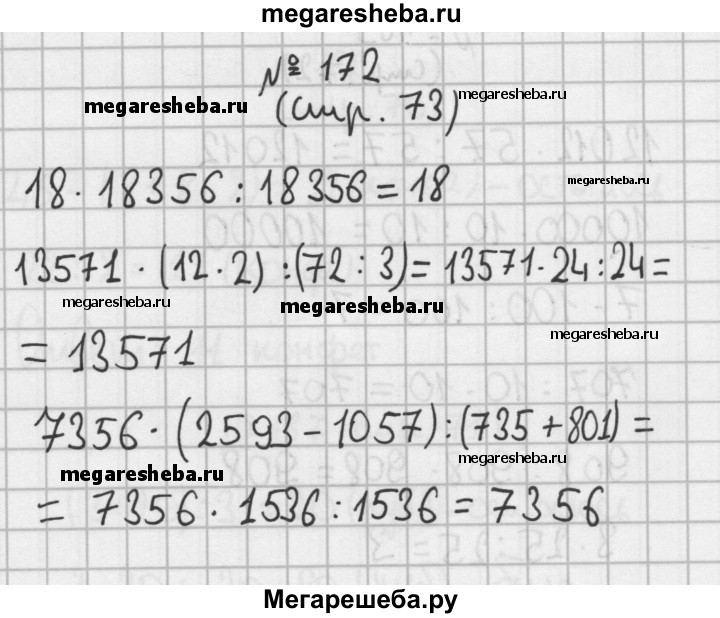 megaresheba.ru
№ 172
megaresheba.ru
(стр. 73)
megaresheba.ru
18 · 18356 : 18356 = 18
megaresheba.ru
13571 · (12 · 2) : (72 : 3) = 13571 · 24 : 24 =
megaresheba.ru
megaresheba.ru
= 13571
megaresheba.ru
7356 · (2593 - 1057) : (735 + 801) =
megaresheba.ru
megaresheba.ru
= 7356 · 1536 : 1536 = 7356
Мегарешеба.ру